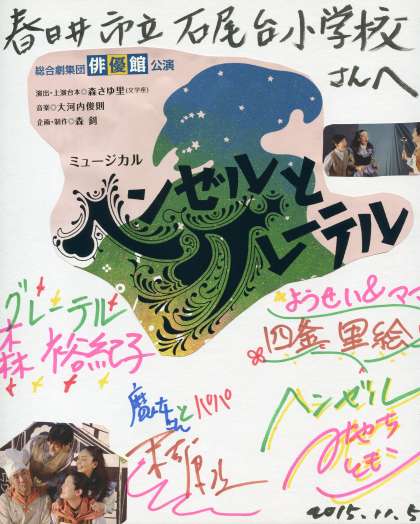 春日井市立 石尾台小学校
さんへ
総合劇集団 俳優館 公演
演出・上演台本◎森さゆ里(文学座)
音楽◎大河内俊則
企画・制作◎森 釗
ミュージカル
ヘンゼルと
グレーテル
グレーテル
森 裕紀子
ようせい&ママ
里絵
魔女さんとパパ
ヘンゼル
2015.11.5